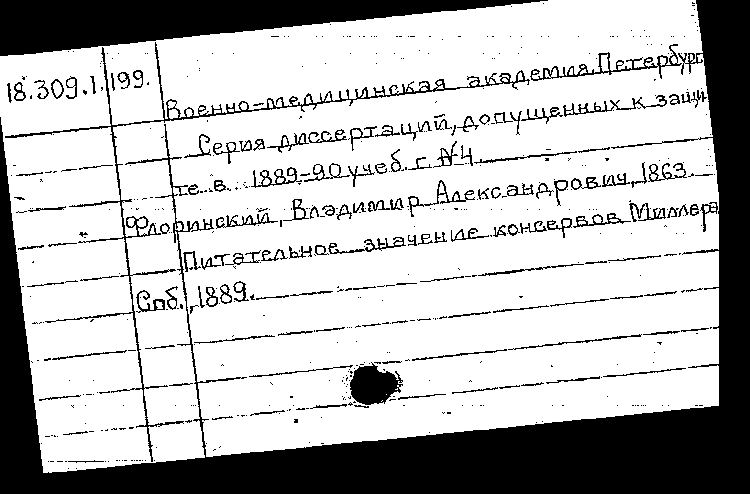 18.309.1.199.
Военно-медицинская академия. Петербург
Серия диссертаций, допущенных к защи-
те в 1889-90 учеб. г. №4.
Флоринский, Владимир Александрович, 1863.
Питательное значение консервов Миллера
Спб., 1889.